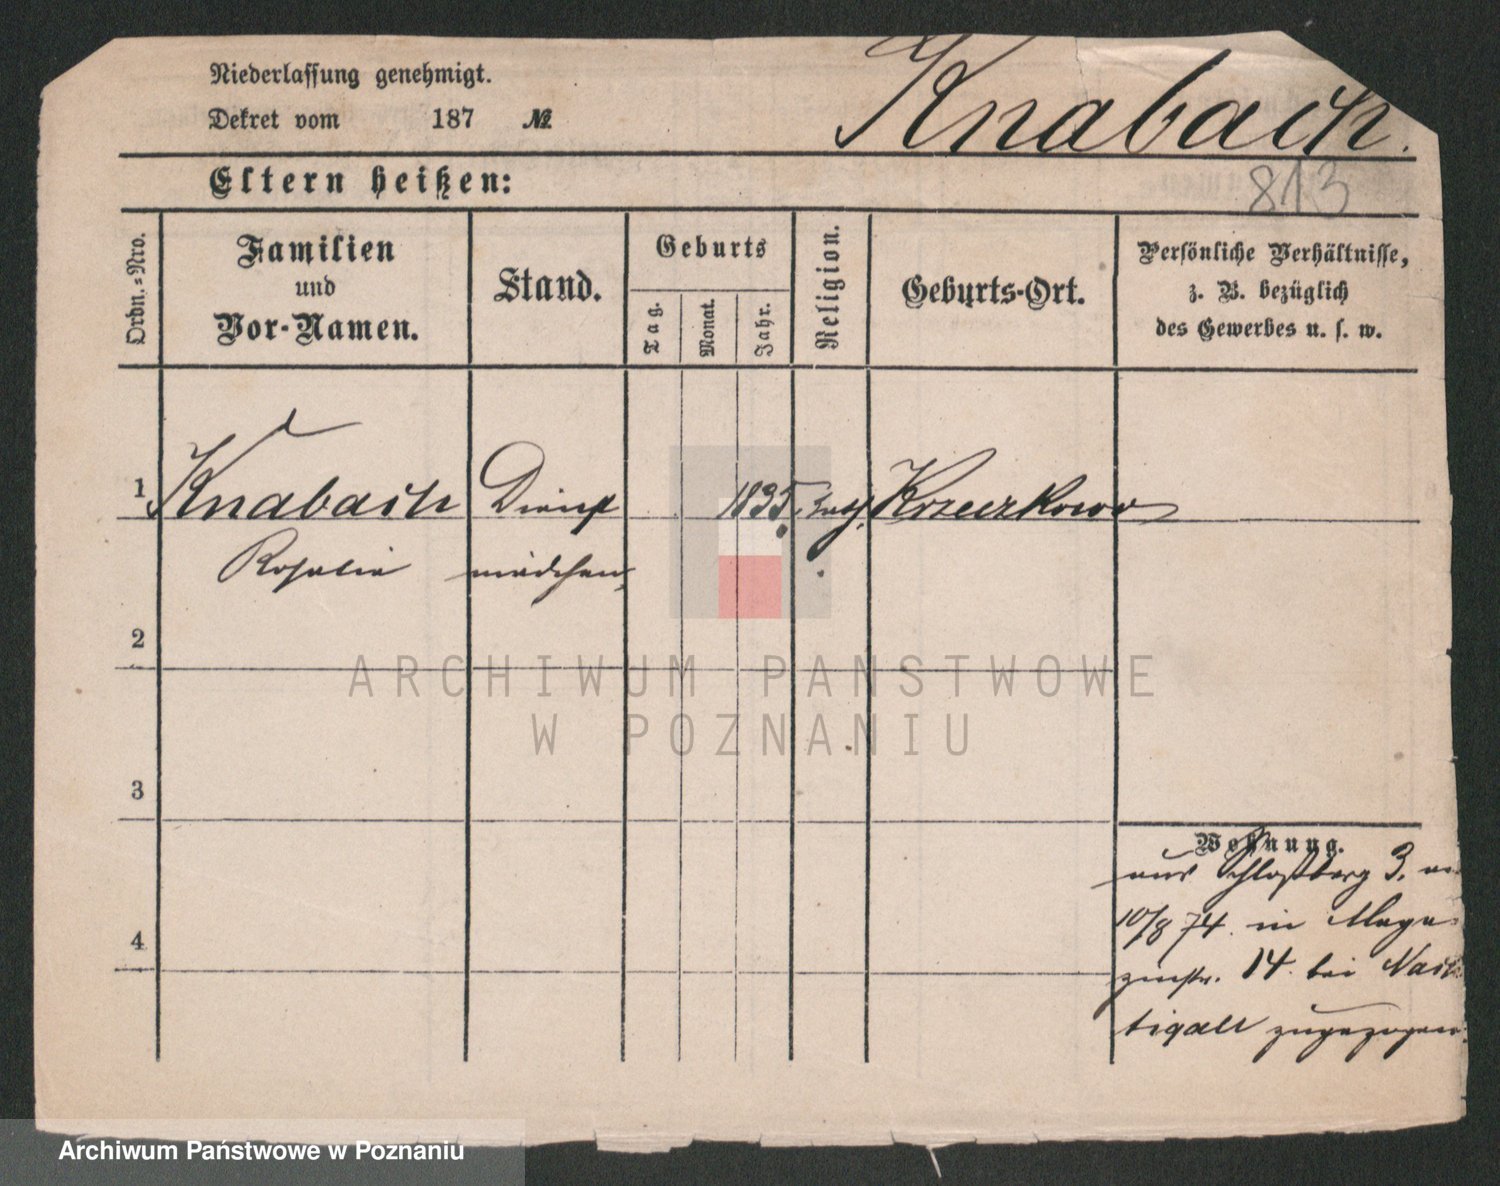 Niederlassung genehmigt.
Dekret vom 187 №
Knabach.
813
Eltern heißen:
Ordn.-Nro.
Familien
und
Vor-Namen.
Stand.
Geburts
Tag.
Monat.
Jahr.
Religion.
Geburts-Ort.
Persönliche Verhältnisse,
z. B. bezüglich
des Gewerbes u. s. w.
1 Knabach Dienst 1835 kath. Krzeczkowo
Rosalie mädchen
2
3
4
Wohnung.
aus Schloßberg 3. am
10/8 74. in Maga-
zinstr. 14. bei Nach
tigall zugezogen.
ARCHIWUM PAŃSTWOWE
W POZNANIU
Archiwum Państwowe w Poznaniu